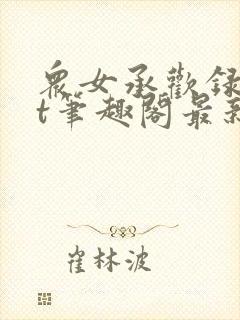 衆女承歡録
t筆趣閣最新
崔林波